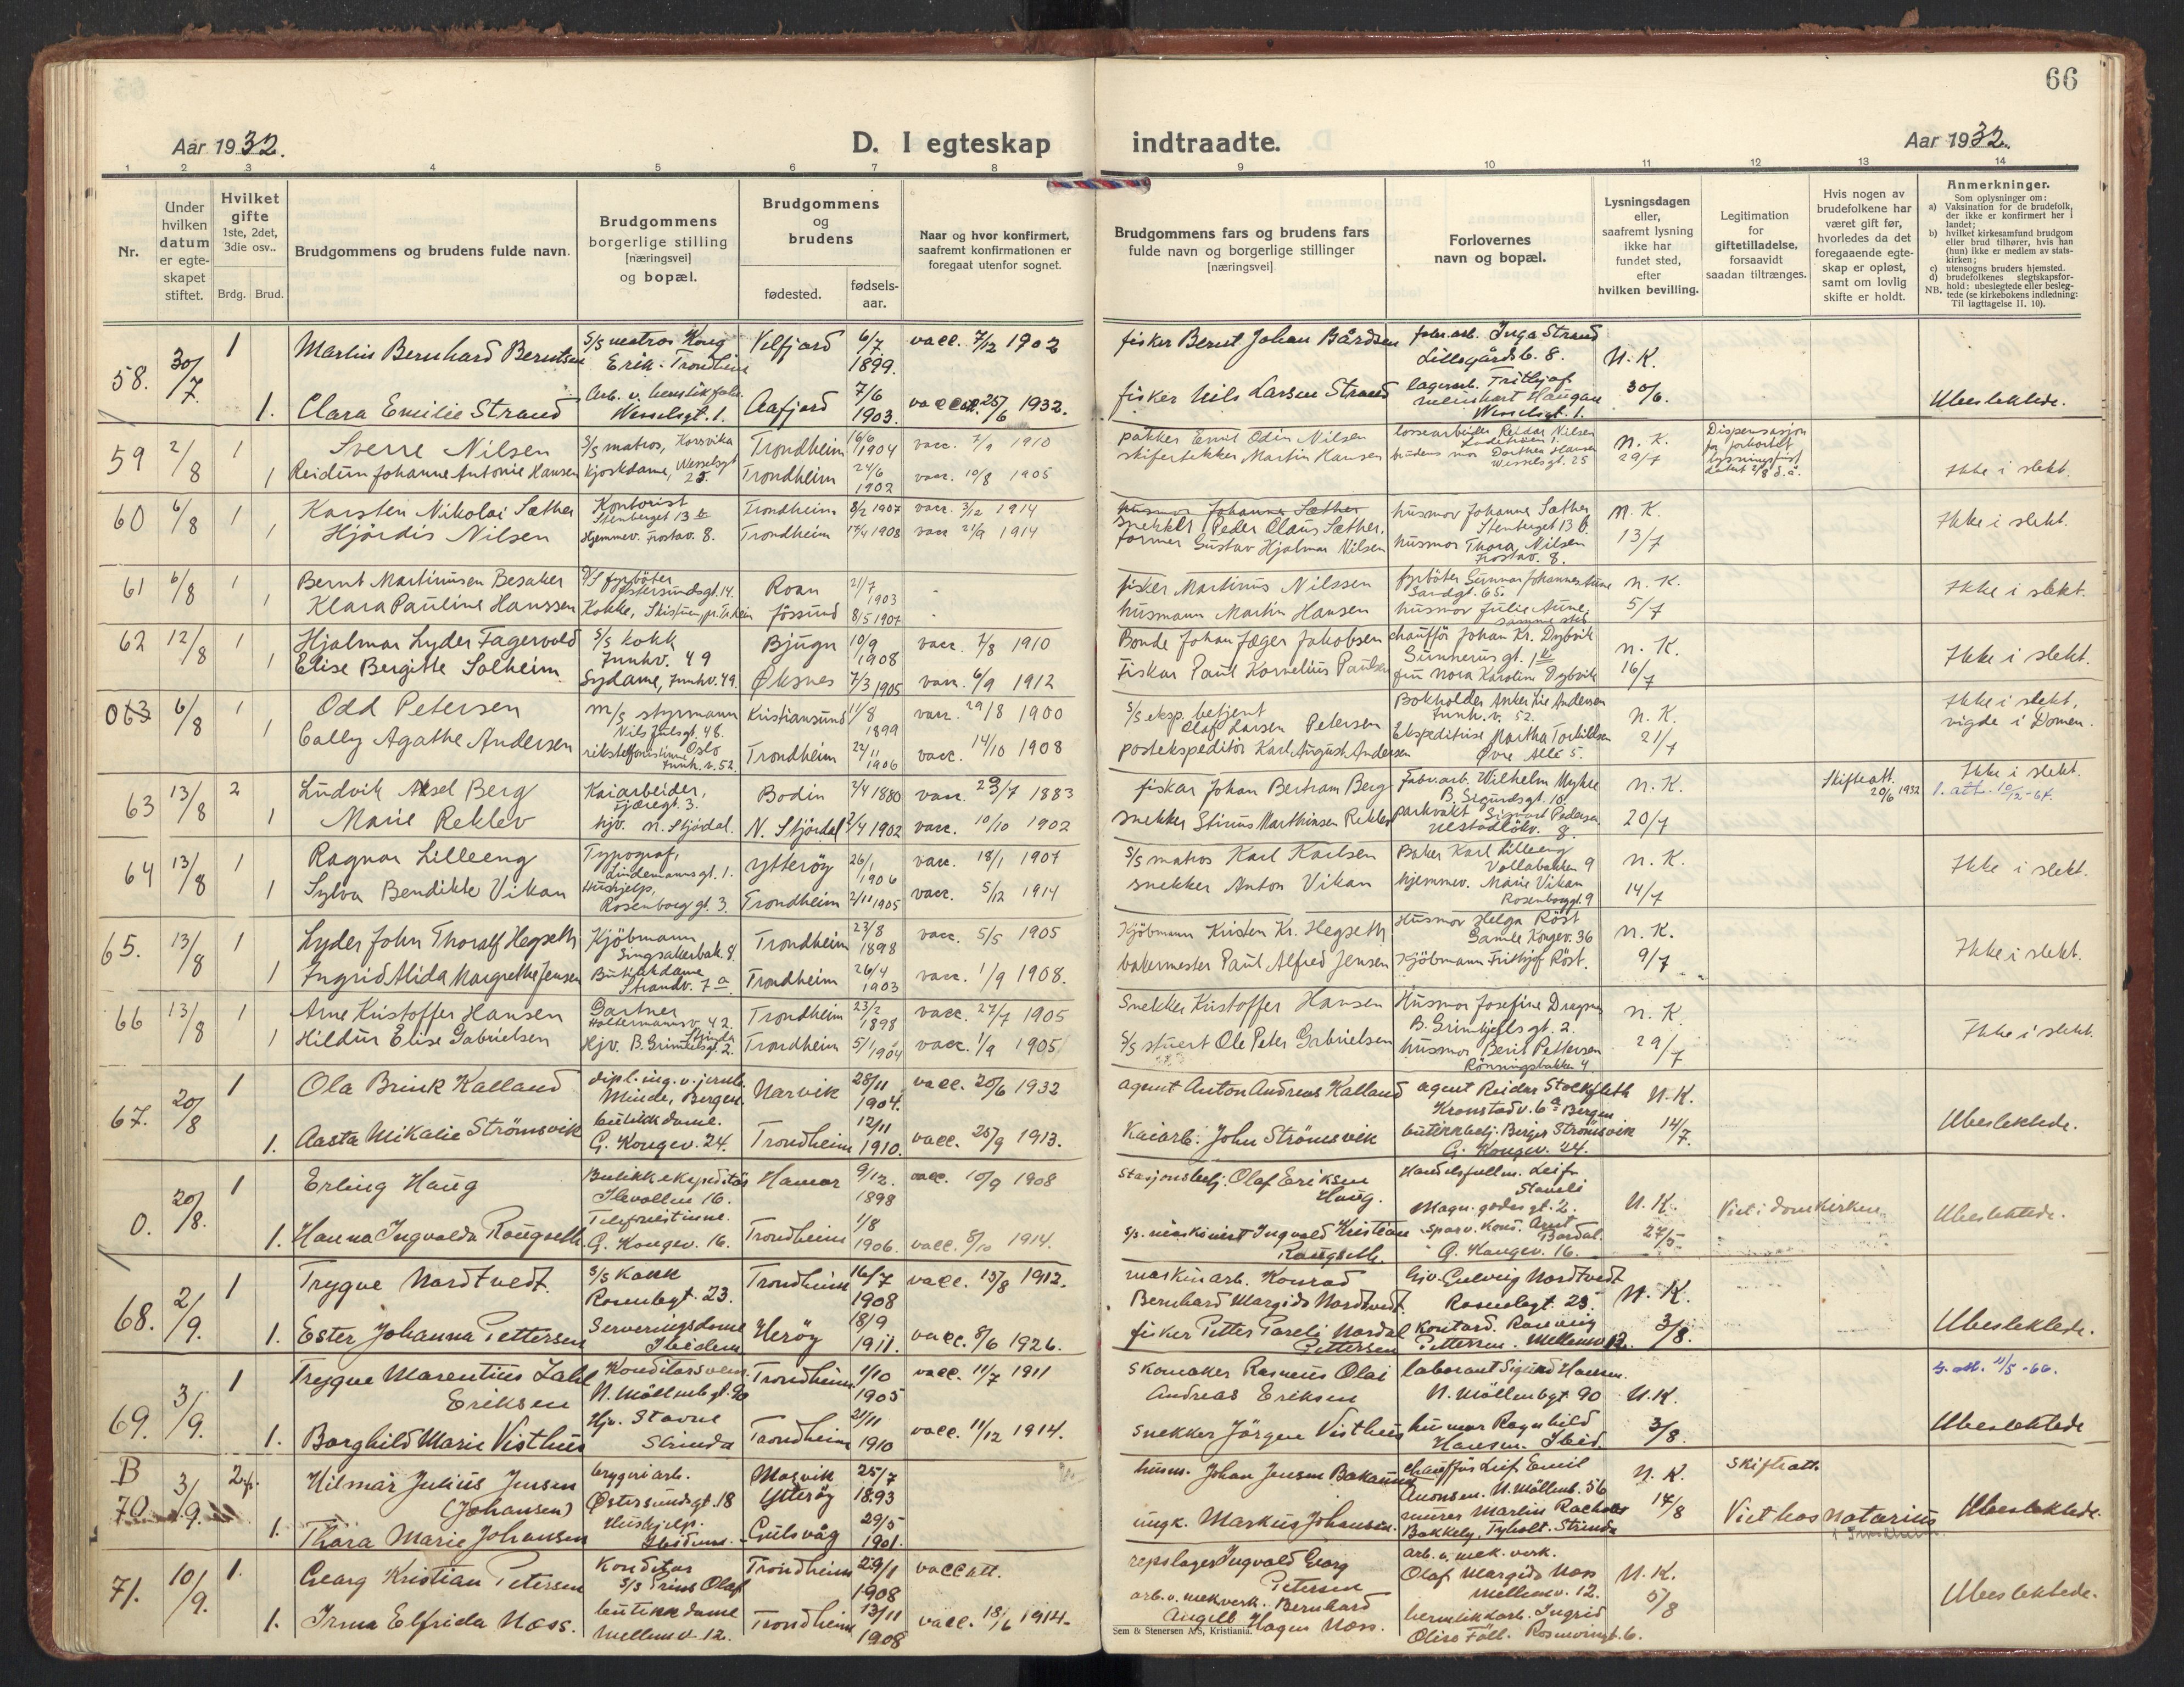 66
Aar 1932.
D. I egteskap indtraadte.
Aar 1932.
1 2 3 4 5 6 7 8 9 10 11 12 13 14
Nr.
Under hvilken datum er egteskapet stiftet.
Hvilket gifte 1ste, 2det, 3die osv..
Brdg. Brud.
Brudgommens og brudens fulde navn.
Brudgommens borgerlige stilling [næringsvei] og bopæl.
Brudgommens og brudens
fødested.
fødsels-aar.
Naar og hvor konfirmert, saafremt konfirmationen er foregaat utenfor sognet.
Brudgommens fars og brudens fars fulde navn og borgerlige stillinger [næringsvei].
Forlovernes navn og bopæl.
Lysningsdagen eller, saafremt lysning ikke har fundet sted, efter hvilken bevilling.
Legitimation for giftetilladelse, forsaavidt saadan tiltrænges.
Hvis nogen av brudefolkene har været gift før, hvorledes da det foregaaende egteskap er opløst, samt om lovlig skifte er holdt.
Anmerkninger.
Som oplysninger om:
a) Vaksination for de brudefolk, der ikke er konfirmert her i landet;
b) hvilket kirkesamfund brudgom eller brud tilhører, hvis han (hun) ikke er medlem av statskirken;
c) utensogns bruders hjemsted.
d) brudefolkenes slegtskapsforhold: ubeslegtede eller beslegtede (se kirkebokens indledning:
NB. Til Iagttagelse II, 10).
58. 30/7. 1 Martin Bernhard Berntsen S/S matros Kong Erik. Trondheim Velfjord 6/7 1899. vacc. 7/12 1902 fisker Bernt Johan Bårdsen Inga Strand Lillegårdsb. 8. N.K.
1. Clara Emilie Strand Wesselsgt. 1. Aafjord 7/6 1903. 25/6 1932. fisker Nils Larsen Strand lagerarb. Wesselsgt. 1. 30/6. Ubeslektede.
59 2/8 1 Sverre Nilsen S/S matros, Korsvika Trondheim 16/6 1904 vacc. 7/9 1910 pakker Emil Odin Nilsen lossearbeider Reidar Nilsen n. K. Dispensasjon
1 Reidun Johanne Antonie Hansen kjoskdame, Wesselsgt 25. Trondheim 24/6 1902 vacc. 10/8 1905 skifertekker Martin Hansen brudens mor Dorthea Hansen Wesselsgt. 25 29/7 Ikke i slekt.
60 6/8 1 Karsten Nikolai Sæther Kontorist Stenberget 13 b Trondheim 8/2 1907 vacc. 3/2 1914 husmor Johanna Sæther snekker Peder Claus Sæther. husmor Johanna Sæther Stenberget 13 b. n. K.
1 Hjördis Nilsen Hjemmev. Frostav. 8. Trondheim 17/4 1908 vacc 21/9 1914 former Gustav Hjalmar Nilsen husmor Thora Nilsen Frostav. 8. 13/7 Ikke i slekt.
61 6/8 1 Bernt Martinusen Besaker S/S fyrböter Östersundsgt. 14. Roan 21/7 1903 fisker Martinus Nilssen fyrböter Gunnar Johannes Aune Sardgt. 65. n. K.
1 Klara Pauline Hanssen Kokke, fössund 8/5 1907 husmann Martin Hansen husmor Julie Aune, samme sted 5/7 Ikke i slekt.
62 12/8 1 Hjalmar Lyder Fagervold S/S kokk Innhv. 49 Bjugn 10/9 1908 vacc. 7/8 1910 Bonde Johan Jæger Jakobsen chaufför Johan Kr. Dybvik Gunnerusgt. 1 b n. K.
1 Elise Bergitte Solheim Sydame, Innhv. 49. Øksnes 7/3 1905 vacc. 6/9 1912 Fisker Paul Kornelius Paulsen fru Nora Karoline Dybvik 16/7 Ikke i slekt.
063 6/8 1 Odd Petersen m/s styrmann Nils Juelsgt. 48. Kristiansund 11/8 1899 vacc. 29/8 1900 S/S eksp. betjent Olaf Larsen Petersen Bokholder Andersen Innh. v. 52. n. K. Ikke i slekt, vigde i Domen.
1 Cally Agathe Andersen rikstelefonistinne Oslo Innh. v. 52. Trondheim 22/11 1906 vacc. 14/10 1908 postekspeditör Karl August Andersen Ekspeditrise Martha Torkildsen Övre Allé 5. 21/7
63 13/8 2 Ludvik Aksel Berg Kaiarbeider, Fjæregt. 3. Bodin 2/4 1880 vacc. 29/7 1883 fisker Johan Bertram Berg Fabr.arb. Wilhelm Myhre B. Sigurdsgt. 10. n. K. Skifteatt. 20/6 1932 Ikke i slekt. 1. att. 10/12-67.
1 Marie Reklev hjv. N. Stjördal. N. Stjördal 2/4 1902 vacc. 10/10 1902 snekker Stinus Marthinsen Reklev parkvakt Sigvart Pedersen 8. 20/7
64 13/8 1 Ragnar Lilleeng Typograf, Lindemannsgt. 1. Ytteröy 26/1 1906 vacc. 18/1 1907 S/S matros Karl Karlsen Baker Karl Lilleeng Vollabakken 9 n. K.
1 Sylva Bendikte Vikan Hushjelp, Rosenborg gt. 3. Trondheim 2/11 1905 vacc. 5/12 1914 snekker Anton Vikan hjemmev. Marie Vikan Rosenborggt. 9 14/7 Ikke i slekt.
65. 13/8 1 Lyder John Thoralf Hegseth Kjöbmann Singsakerbak. 8. Trondheim 23/8 1898 vacc. 5/5 1905 Kjöbmann Kristen Kr. Hegseth Husmor Helga Röst Gamle Kongev. 36 n. K.
1 Ingrid Alida Margrethe Jensen Butikkdame Strandv. 7 a Trondheim 26/4 1903 vacc. 1/9 1908. bakermester Paul Alfred Jensen Kjöbmann Frithjof Röst. 9/7 Ikke i slekt.
66 13/8 1 Arne Kristoffer Hansen Gartner Holtermannsv. 42. Strinda Trondheim 23/2 1898 vacc. 27/7 1905 Snekker Kristoffer Hansen Husmor Josefine Dragsnes B. Grimkjelsgt. 2. n. K.
1 Hildur Elise Gabrielsen Hjv. B. Grimkelsgt. 2. Trondheim 5/1 1904 vacc. 1/9 1905 S/S stuert Ole Peter Gabrielsen husmor Berit Pettersen Rönningsbakken 4 29/7 Ikke i slekt.
67. 20/8 1 Ola Brink Kalland dipl. ing. v. jernb. Minde, Bergen. Narvik 28/11 1904. vacc. 20/6 1932 agent Anton Andreas Kalland agent Reidar Stoltfleth Kronstadv. 6 a Bergen. N.K.
1. Aasta Mikalie Strömsvik butikkdame. G. Kongev. 24. Trondheim 12/11 1910. vacc. 25/9 1913. Kaiarb. John Strömsvik butikkbetj. Birger Strömsvik G. Kongev. 24. 14/7. Ubeslektede.
0. 20/8. 1 Erling Haug Butikkekspeditör Ilevollen 16. Hamar 9/12. 1898 vacc. 10/9 1908 Stasjonsbetj. Olaf Eriksen Haug. Handelsfullm. Leif Magn. godes gt. 2. N.K. Viet i domkirken
1. Hanna Ingvalda Raugseth Telefonistinne. G. Kongev. 16. Trondheim 1/8 1906. vacc. 8/10 1914. S/S. maskinist Ingvald Kristian Raugseth. sporv. kond. Arnt Bardal. G. Kongev. 16. 27/5 Ubeslektede.
68. 2/9. 1 Trygve Nordtvedt S/S Kokk Rosenbgt. 23. Trondheim 16/7 1908 vacc. 13/8 1912. maskinarb. Konrad Bernhard Margido Nordtvedt. hjv. Gulveig Nordtvedt Rosenbgt. 23. N.K.
1. Ester Johanna Pettersen Serveringsdame Ibidem Heröy 18/9 1911. vacc. 8/6 1926. fisker Petter Pareli Nordal Pettersen Kontord. Rosenvig Pettersen. Mellemv. 12. 3/8. Ubeslektede.
69. 3/9. 1 Trygve Marentius Lahl Eriksen Konditorsvenn N. Möllenbgt. 90 Trondheim 1/10 1905 vacc. 11/7 1911 Skomaker Rasmus Olai Andreas Eriksen laborant Sigurd Hansen. N. Möllenbgt 90 N.K. 11/5-66.
1. Borghild Marie Visthus Hjv. Stavne Strinda Trondheim 21/11 1910 vacc. 11/12 1914. Snekker Jörgen Visthus husmor Ragnhild Hansen. Ibid. 3/8. Ubeslektede
B 70. 3/9. 2. Hilmar Julius Jensen (Johansen) bryggeriarb. Östersundsgt. 18 Mosvik Ytteröy 25/7 1893 husm. Johan Jensen Bakaunet chaufför Leif Emil Aronsen. N. Möllenb. 56 N.K. Skifteatt.
1. Thora Marie Johansen Hushjelp. Ibidem. Gulsvåg 29/5 1901. ungk. Markus Johansen. murer Martin Rachløs Bakkely, Tyholt. Strinda 17/8 Viet hos Notarius i Trondheim. Ubeslektede.
71. 10/9. 1. Georg Kristian Petersen Konditor S/S Prins Olaf Trondheim 29/1 1908 vaccatt. repslager Ingvald Georg Petersen arb. v. mek. verk. Olaf Margido Noss Mellemv. 12. N.K.
1. Irma Elfrida Noss. butikkdame Mellemv. 12. Trondheim 13/11 1908 vacc. 18/6 1914. arb. v. mek verk. Bernhard Angell Hagen Noss. hermetikkarb. Ingrid Rosenvingt. 6. 5/8 Ubeslektede.
Sem & Stenersen A/S, Kristiania.